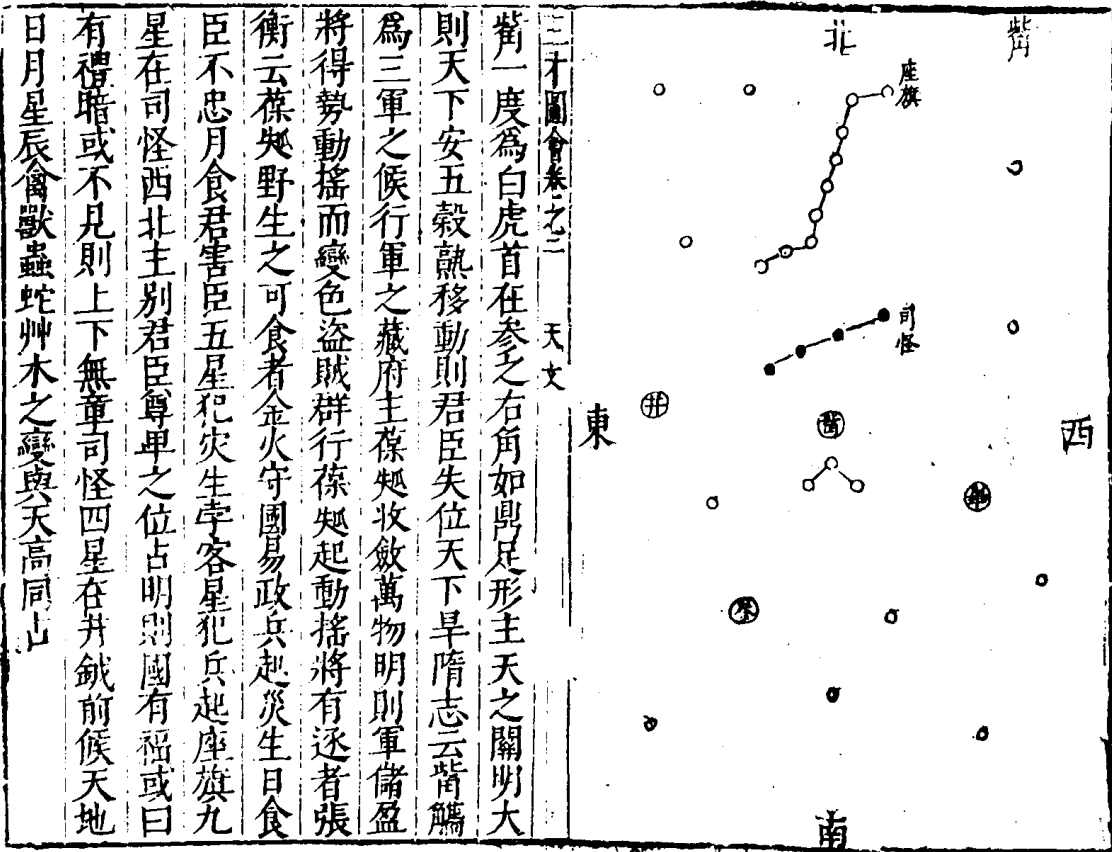 觜
北
座旗
司怪
西
東
井
觜
畢
參
南
三才圖會卷之二 天文
觜一度爲白虎首在參之右角如鼎足形主天之關明大
則天下安五穀熟移動則君臣失位天下旱隋志云觜觿
爲三軍之候行軍之藏府主葆𣏌收斂萬物明則軍儲盈
將得勢動搖而變色盜賊群行葆起動搖將有逐者張
衡云葆野生之可食者金火守國易政兵起災生日食
臣不忠月食君害臣五星犯灾生孛客星犯兵起座旗九
星在司怪西北主別君臣尊卑之位占明則國有福或曰
有禮暗或不見則上下無章司怪四星在井鉞前候天地
日月星辰禽獸蟲蛇艸木之變與天高同占